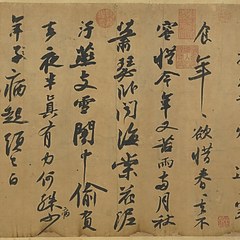 食年〻欲惜春〻去不
容惜今年又苦雨兩月秋
蕭瑟卧聞海棠花泥
汙燕支雪闇中偷負
去夜半真有力何殊病少
年子病起頭已白